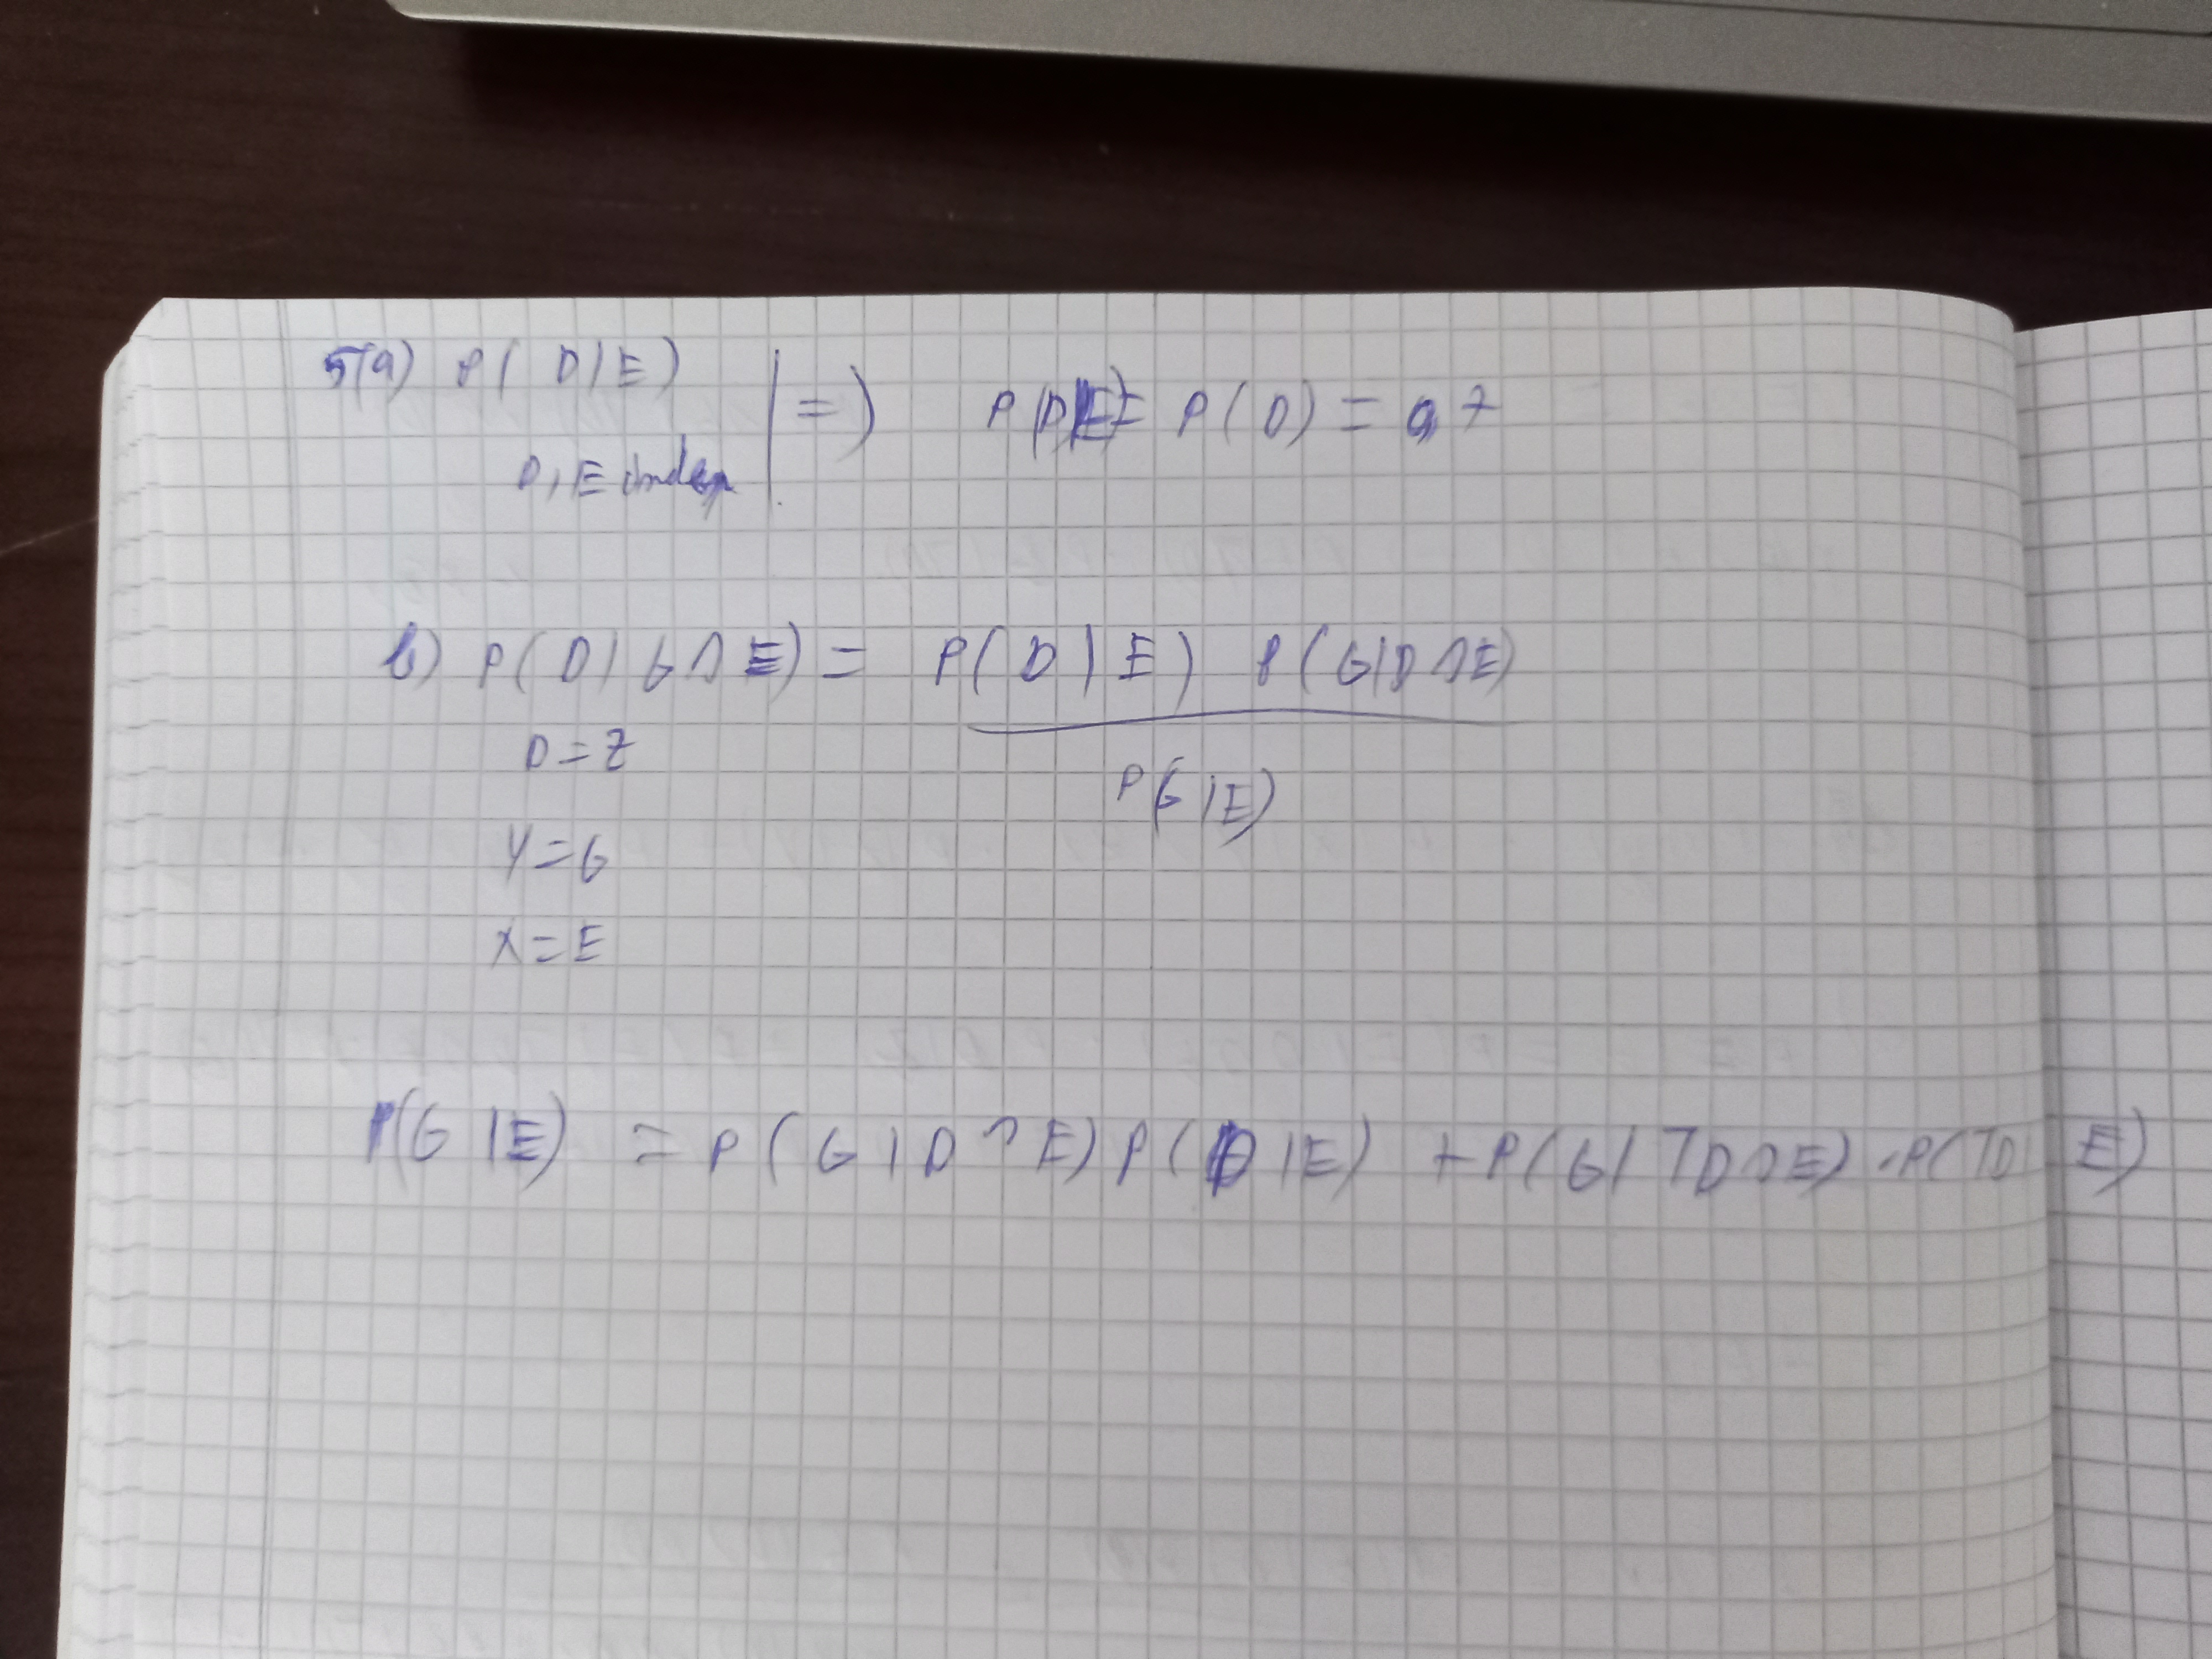 5(a) P( D | E)
D, E indep
=> P(D|E) = P(D) = 0,7
b) P(D | G ∩ E) = P(D | E) P(G | D ∩ E)
P(G | E)
D = Z
Y = G
X = E
P(G | E) = P(G | D ∩ E) P(D | E) + P(G | ⌐D ∩ E) · P(⌐D | E)